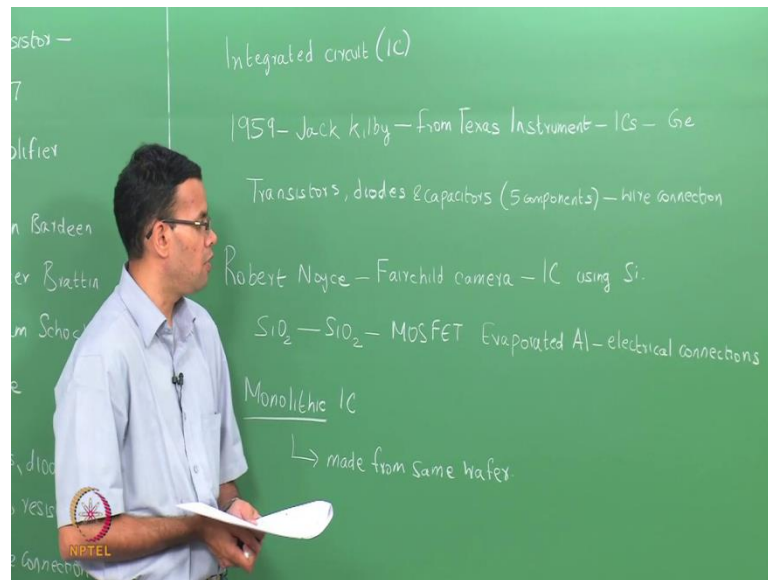 sistor –
7
plifier
n Bardeen
er Brattin
m Schoc
e
, diod
, resis
e connection
Integrated circuit (IC)
1959 – Jack Kilby – from Texas Instrument – ICs – Ge
Transistors, diodes & capacitors (5 components) – wire connection
Robert Noyce – Fairchild camera – IC using Si.
SiO2 – SiO2 – MOSFET Evaporated Al – electrical connections
Monolithic IC
↳ made from same wafer.
NPTEL